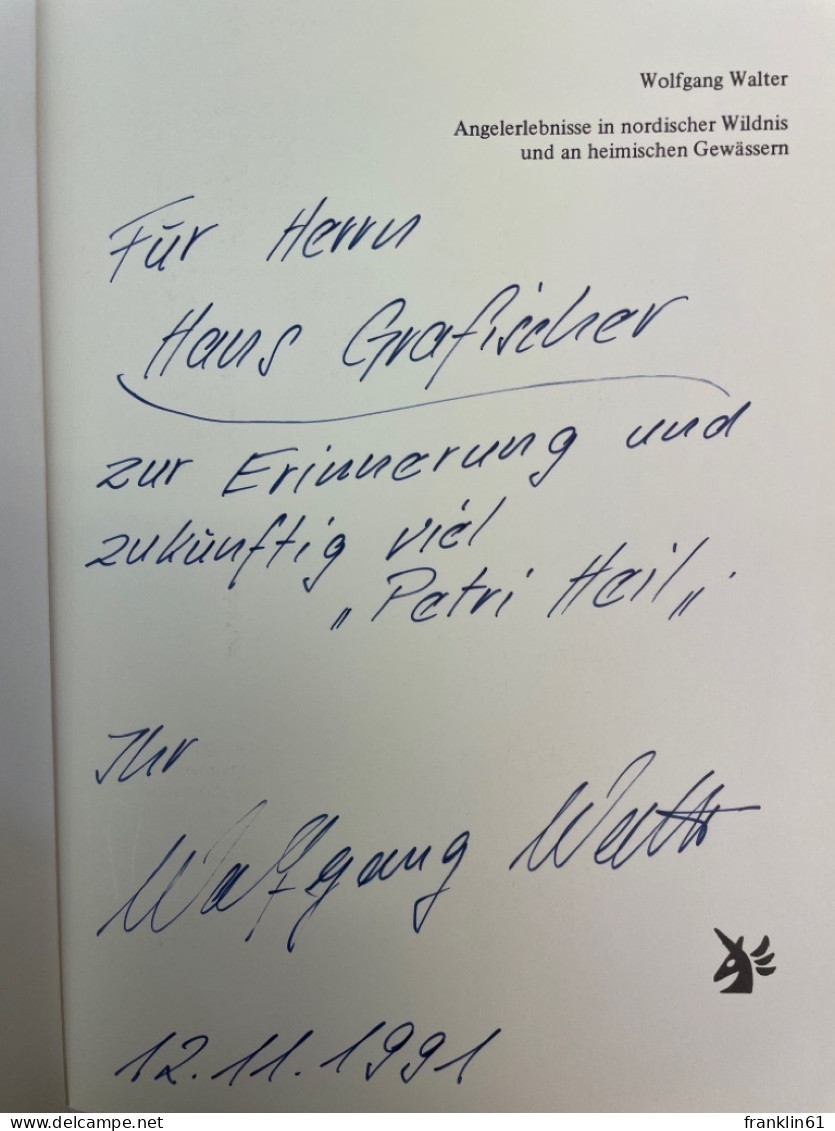 Wolfgang Walter
Angelerlebnisse in nordischer Wildnis
und an heimischen Gewässern
Für Herrn
Hans Grafischer
zur Erinnerung und
zukünftig viel
„Petri Heil„.
Ihr
Wolfgang Walter
12.11.1991
franklin61